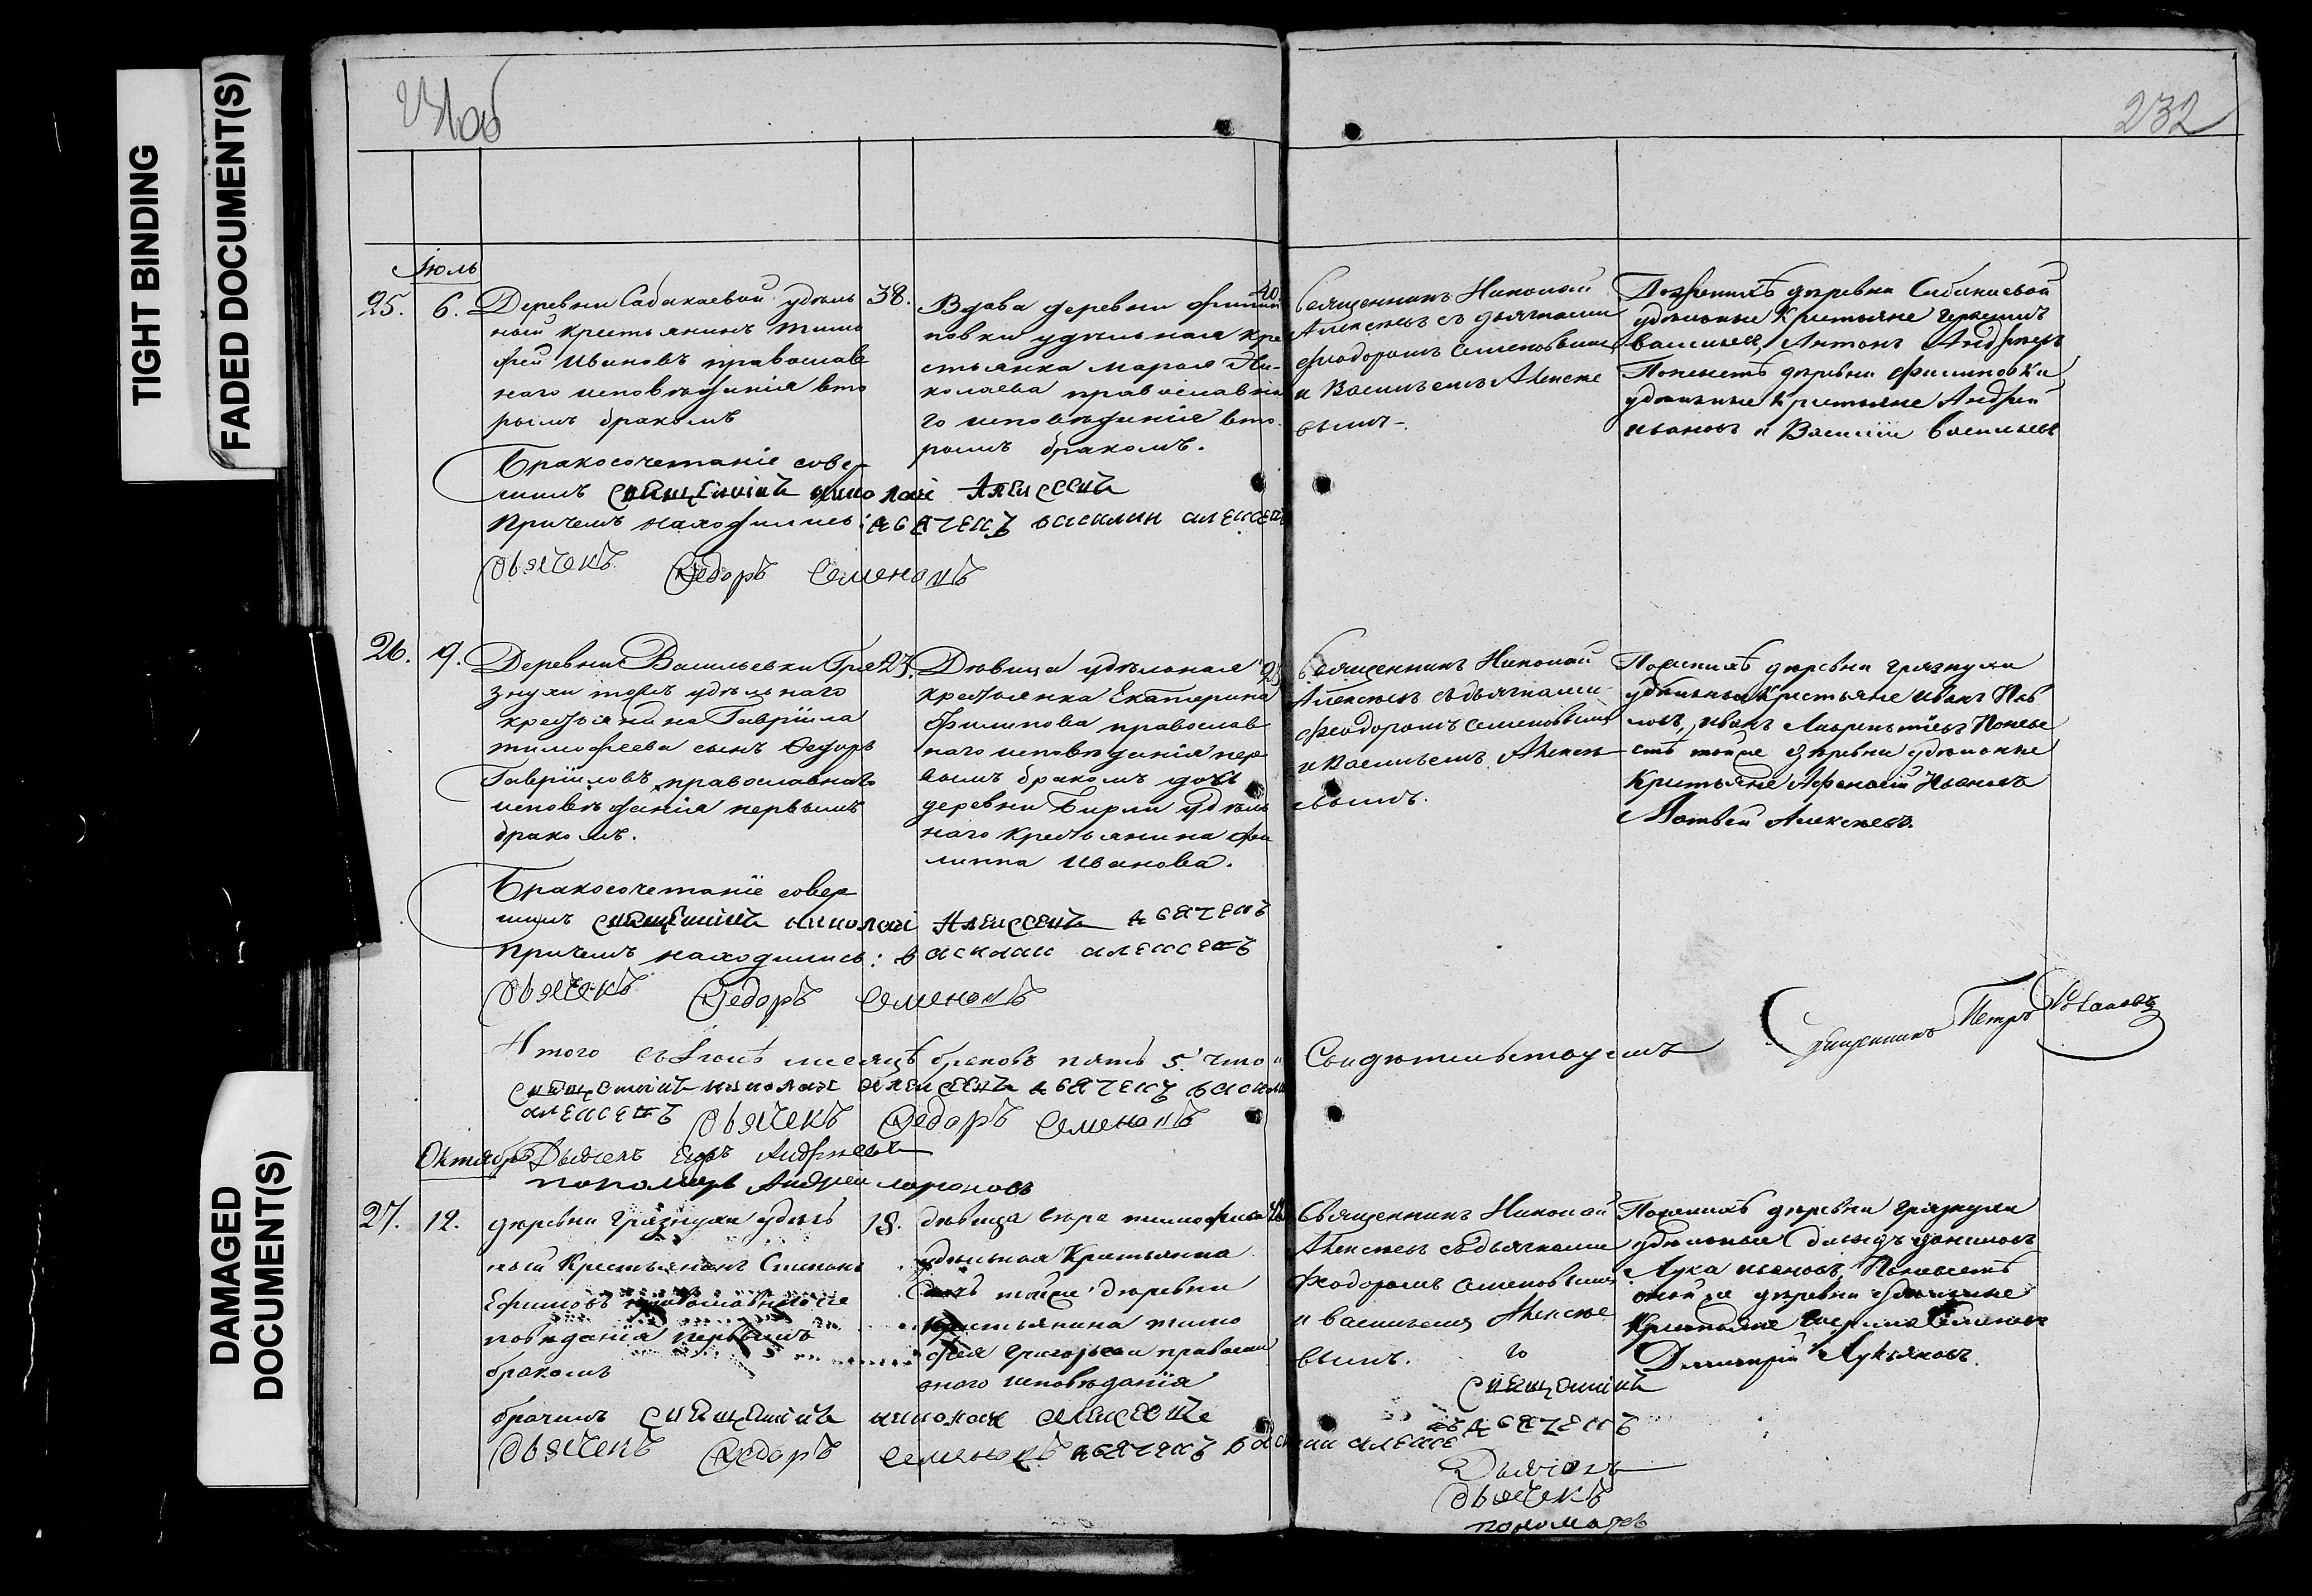 TIGHT BINDING
FADED DOCUMENT(S)
DAMAGED
DOCUMENT(S)
232
Іюль
25. 6. Деревни Сабакаевой удѣль
ный крестьянинъ Тимо
фей Ивановъ православ
наго исповѣданія вто
рымъ бракомъ
38.
Вдова деревни Филип
повки удѣльная кре
стьянка Марья Ни-
колаева православна
го исповѣданія вто
рымъ бракомъ.
40.
Священникъ Николай
Алексѣевъ съ дьячками
Феодоромъ Семеновымъ
и Васильемъ Алексѣе
вымъ.
По женихѣ деревни Сабакаевой
удѣльные крестьяне Герасимъ
Васильевъ, Антонъ Андреевъ
По невѣстѣ деревни Филиповки
удѣльные крестьяне Андрей
Ивановъ и Василій Васильевъ
Бракосочетаніе совер
шилъ священникъ николай Алексеевъ
Причемъ находились: дьячекъ василии алексеевъ
Дьячекъ Федоръ Семеновъ
26. 19. Деревни Васильевки Гря
знухи тожъ удѣльнаго
крестьянина Гавріила
Тимофеева сынъ Федоръ
Гавріиловъ, православнаго
исповѣданія первымъ
бракомъ.
23.
Дѣвица удѣльная
крестьянка Екатерина
Филипова православ
наго исповѣданія пер
вымъ бракомъ дочь
деревни Бирли удѣль
наго крестьянина Фи
липпа Иванова.
Священникъ Николай
Алексѣевъ съ дьячками
Феодоромъ Семеновымъ
и Васильемъ Алексѣ
евымъ.
По женихѣ деревни Грязнухи
удѣльные крестьяне Иванъ Пав
ловъ, Иванъ Лаврентьевъ По невѣ
стѣ тойже деревни удѣльные
крестьяне Афанасій Ивановъ
Матвей Алексѣевъ.
Бракосочетаніе совер
шилъ священникъ николай Алексеевъ дьячекъ
Причемъ находились: василии алексеевъ
Дьячекъ Федоръ Семеновъ
Итого въ Іюлѣ месяцѣ браковъ пять 5. что и
Свидѣтельствуемъ
Священникъ Петръ
священникъ николай алексеевъ дьячекъ васили
алексеевъ Дьячекъ Федоръ Семеновъ
Дьячекъ Егоръ Андреевъ
пономарь Андреи
Октябрь
27. 12. деревни Грязнухи удѣль
ный крестьянинъ Степанъ
Ефимовъ православнаго ис
поведанія первымъ
бракомъ
18.
дѣвица тимофеева
удѣльная крестьянка
дочь тойже деревни
крестьянина Тимо
фея Григорьева правосла
внаго исповѣданія
Священникъ Николай
Алексѣевъ съ дьячками
Феодоромъ Семеновымъ
и Васильемъ Алексѣе
вымъ.
По женихѣ деревни Грязнухи
удѣльные Давыдъ Даниловъ
Лука Ивановъ. По невѣстѣ
оной же деревни удѣльные
крестьяне Семеновъ
Дмитрій Лукьяновъ.
брачилъ священникъ николаи алексеевъ
Дьячекъ Федоръ Семеновъ дьячекъ василии алексе
священникъ
евъ дьячекъ
Дьячекъ
Дьячекъ
пономарь